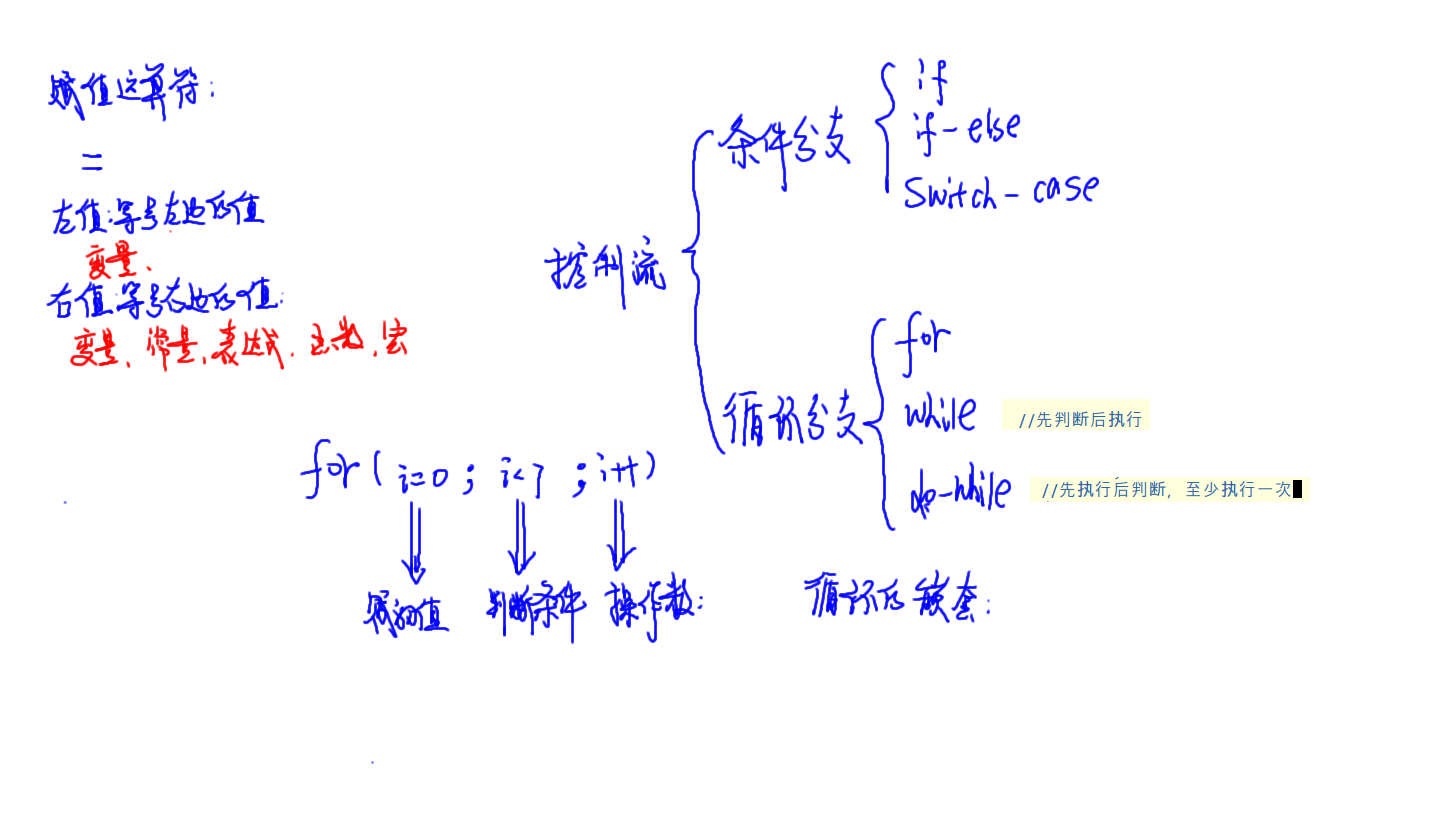 赋值运算符:
=
左值:等号左边的值
变量、
右值:等号右边的值:
变量、常量、表达式、函数、宏
控制流
条件分支
if
if-else
Switch-case
循环分支
for
while //先判断后执行
do-while //先执行后判断，至少执行一次
for( i=0 ; i<7 ; i++)
赋初值 判断条件 操作数:
循环的嵌套: